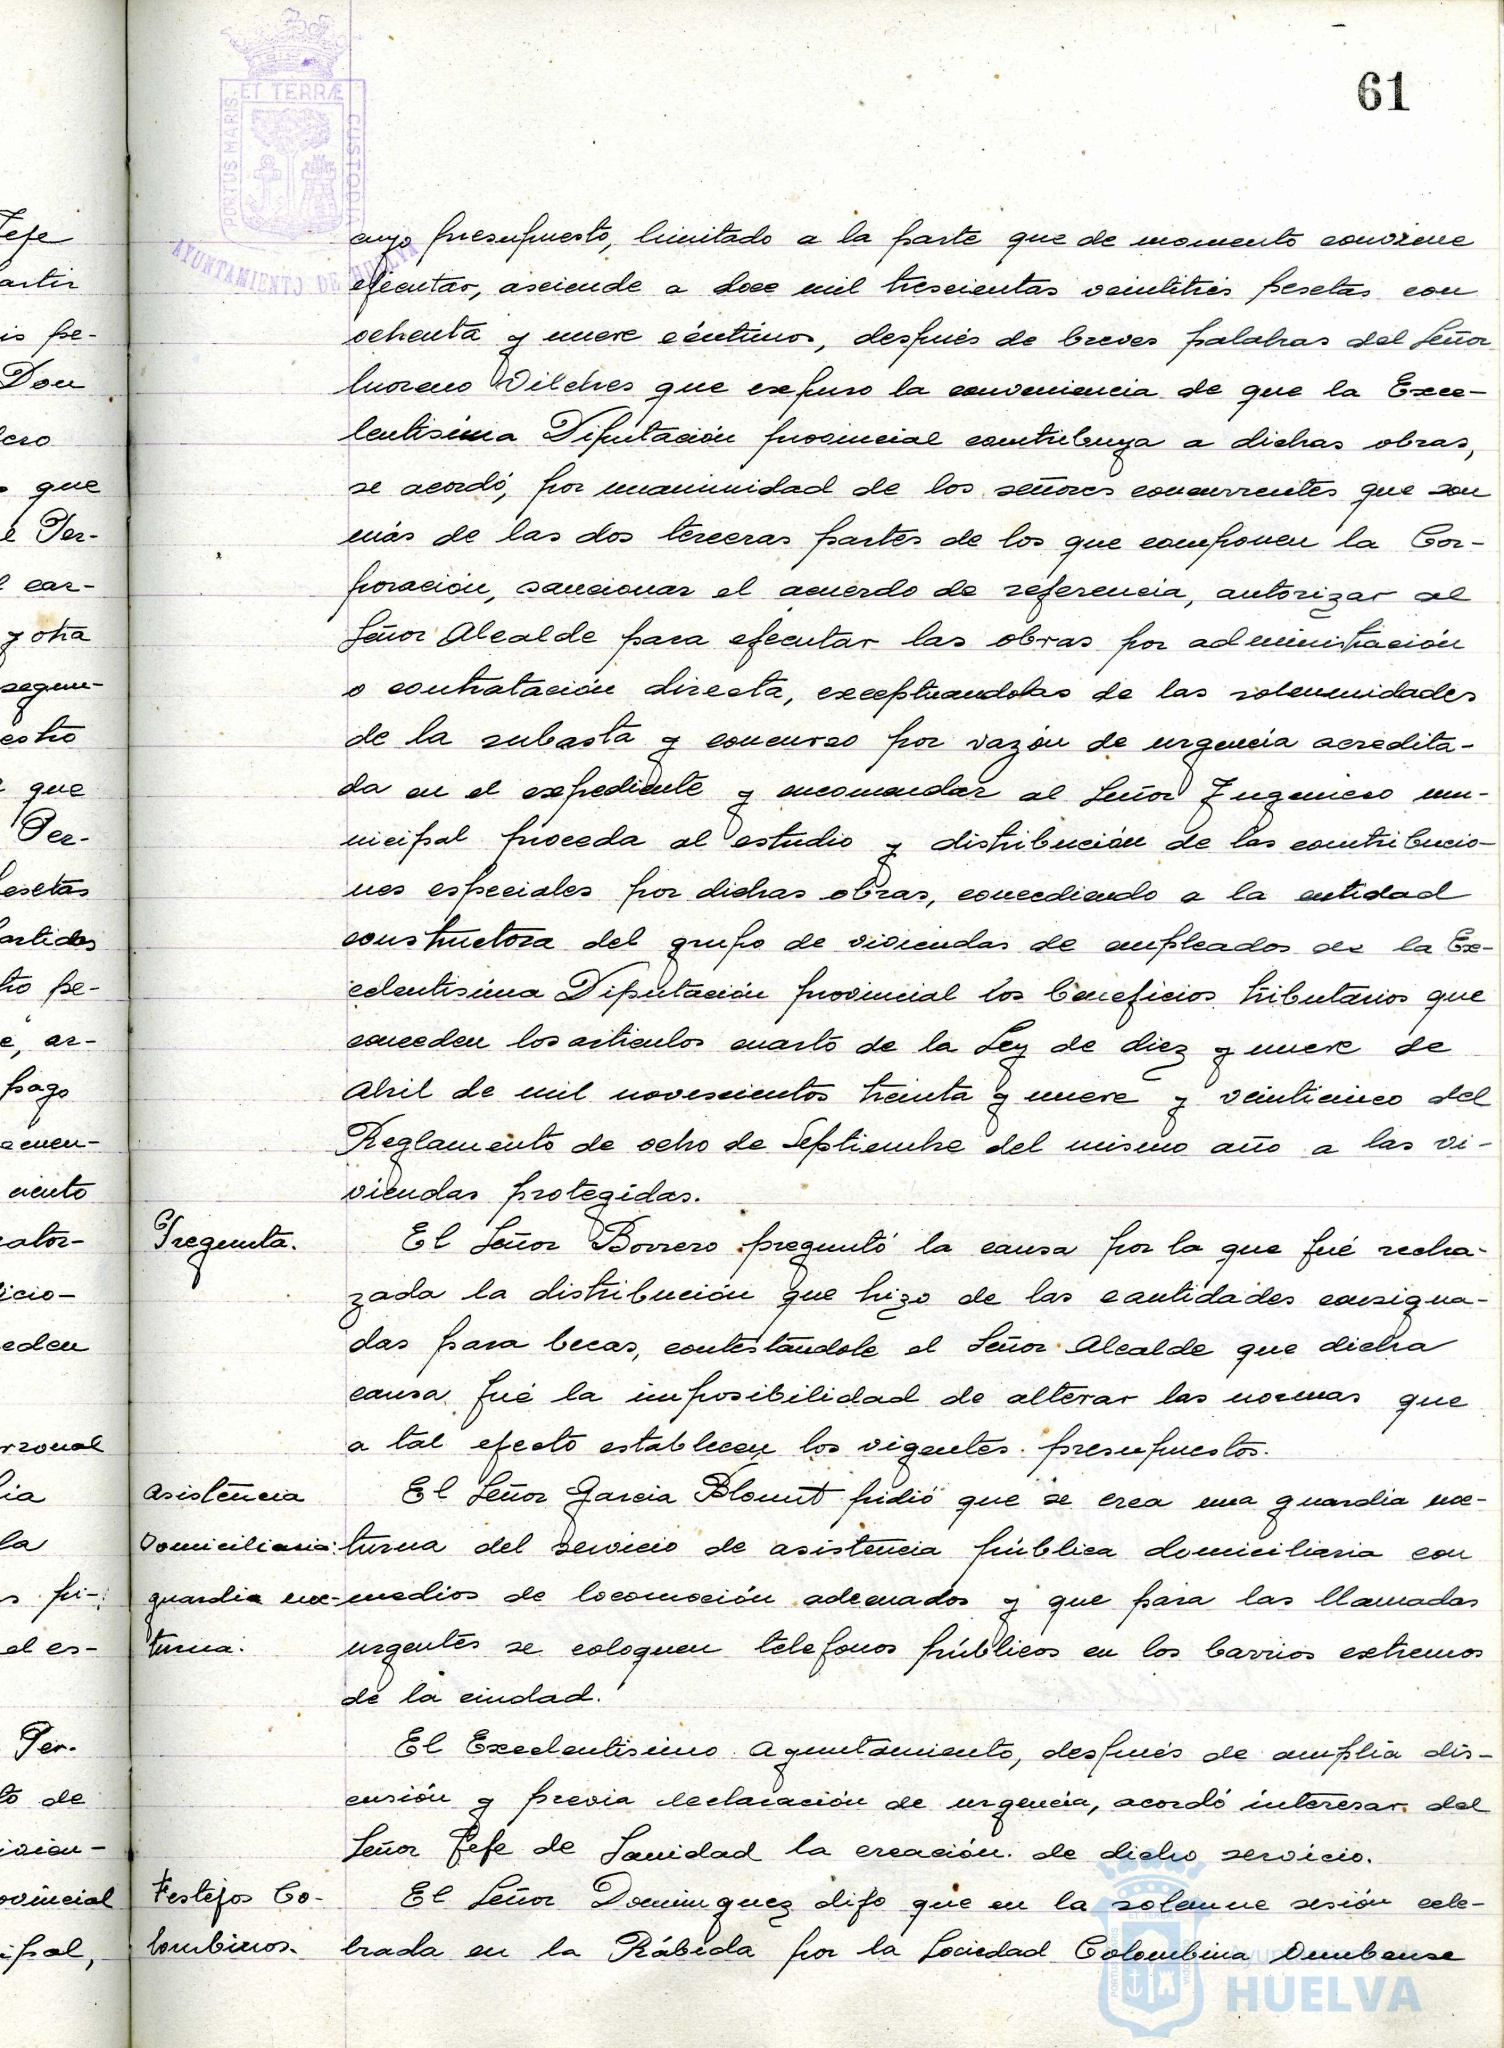 61
PORTUS MARIS ET TERRÆ CUSTODIA
AYUNTAMIENTO DE HUELVA
cuyo presupuesto, limitado a la parte que de momento conviene
ejecutar, asciende a doce mil trescientas veintitrés pesetas con
ochenta y nueve céntimos, después de breves palabras del Señor
Moreno Vilches que expuso la conveniencia de que la Exce-
lentisima Diputación provincial contribuya a dichas obras,
se acordó, por unanimidad de los señores concurrentes que son
más de las dos terceras partes de los que componen la Cor-
poración, sancionar el acuerdo de referencia, autorizar al
Señor Alcalde para ejecutar las obras por administración
o contratación directa, exceptuandolas de las solemnidades
de la subasta y concurso por razón de urgencia acredita-
da en el expediente y encomendar al Señor Ingeniero mu-
nicipal proceda al estudio y distribución de las contribucio-
nes especiales por dichas obras, concediendo a la entidad
constructora del grupo de viviendas de empleados de la Ex-
celentisima Diputación provincial los beneficios tributarios que
conceden los articulos cuarto de la Ley de diez y nueve de
Abril de mil novescientos treinta y nueve y veinticinco del
Reglamento de ocho de Septiembre del mismo año a las vi-
viendas protegidas.
Pregunta.
El Señor Borrero preguntó la causa por la que fué recha-
zada la distribución que hizo de las cantidades consigna-
das para becas, contestandole el Señor Alcalde que dicha
causa fué la imposibilidad de alterar las normas que
a tal efecto establecen los vigentes presupuestos.
Asistencia
Domiciliaria:
guardia noc-
turna.
El Señor Garcia Blomt pidió que se crea una guardia noc-
turna del servicio de asistencia pública domiciliaria con
medios de locomoción adecuados y que para las llamadas
urgentes se coloquen telefonos públicos en los barrios extremos
de la ciudad.
El Excelentisimo Ayuntamiento, después de amplia dis-
cusión y previa declaración de urgencia, acordó interesar del
Señor Jefe de Sanidad la creación de dicho servicio.
Festejos Co-
lombinos.
El Señor Dominguez dijo que en la solemne sesión cele-
brada en la Rábida por la Sociedad Colombina Onubense
HUELVA
Jefe
Don
que
y otra
que
pesetas
partidas
pago
ciento
la
Per-
to de